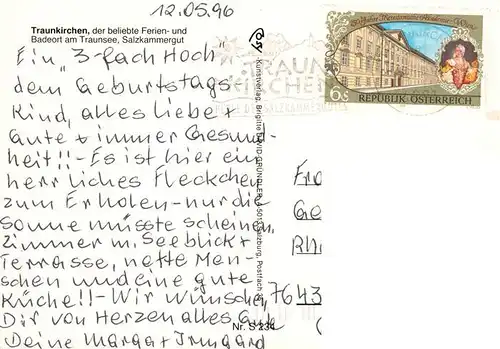 12.05.96
Traunkirchen, der beliebte Ferien- und
Badeort am Traunsee, Salzkammergut
Ein „3-fach Hoch"
dem Geburtstags
Kind, alles Liebe +
Gute + immer Gesund-
heit!! - Es ist hier ein
herrliches Fleckchen
zum Erholen - nur die
Sonne müsste scheinen.
Zimmer m. Seeblick +
Terrasse, nette Men-
schen und eine gute
Küche!! - Wir wünschen
Dir von Herzen alles Gute
Deine Marga + Irmgard
Nr. S 234
Kunstverlag, Brigitte DAVID GRÜNDLER, A-5011 Salzburg, Postfach
TRAUN
KIRCHEN
PERLE DES SALZKAMMERGUTES
Theresianische Akademie Wien
6s
REPUBLIK ÖSTERREICH
Fr
Ge
Rh
7643